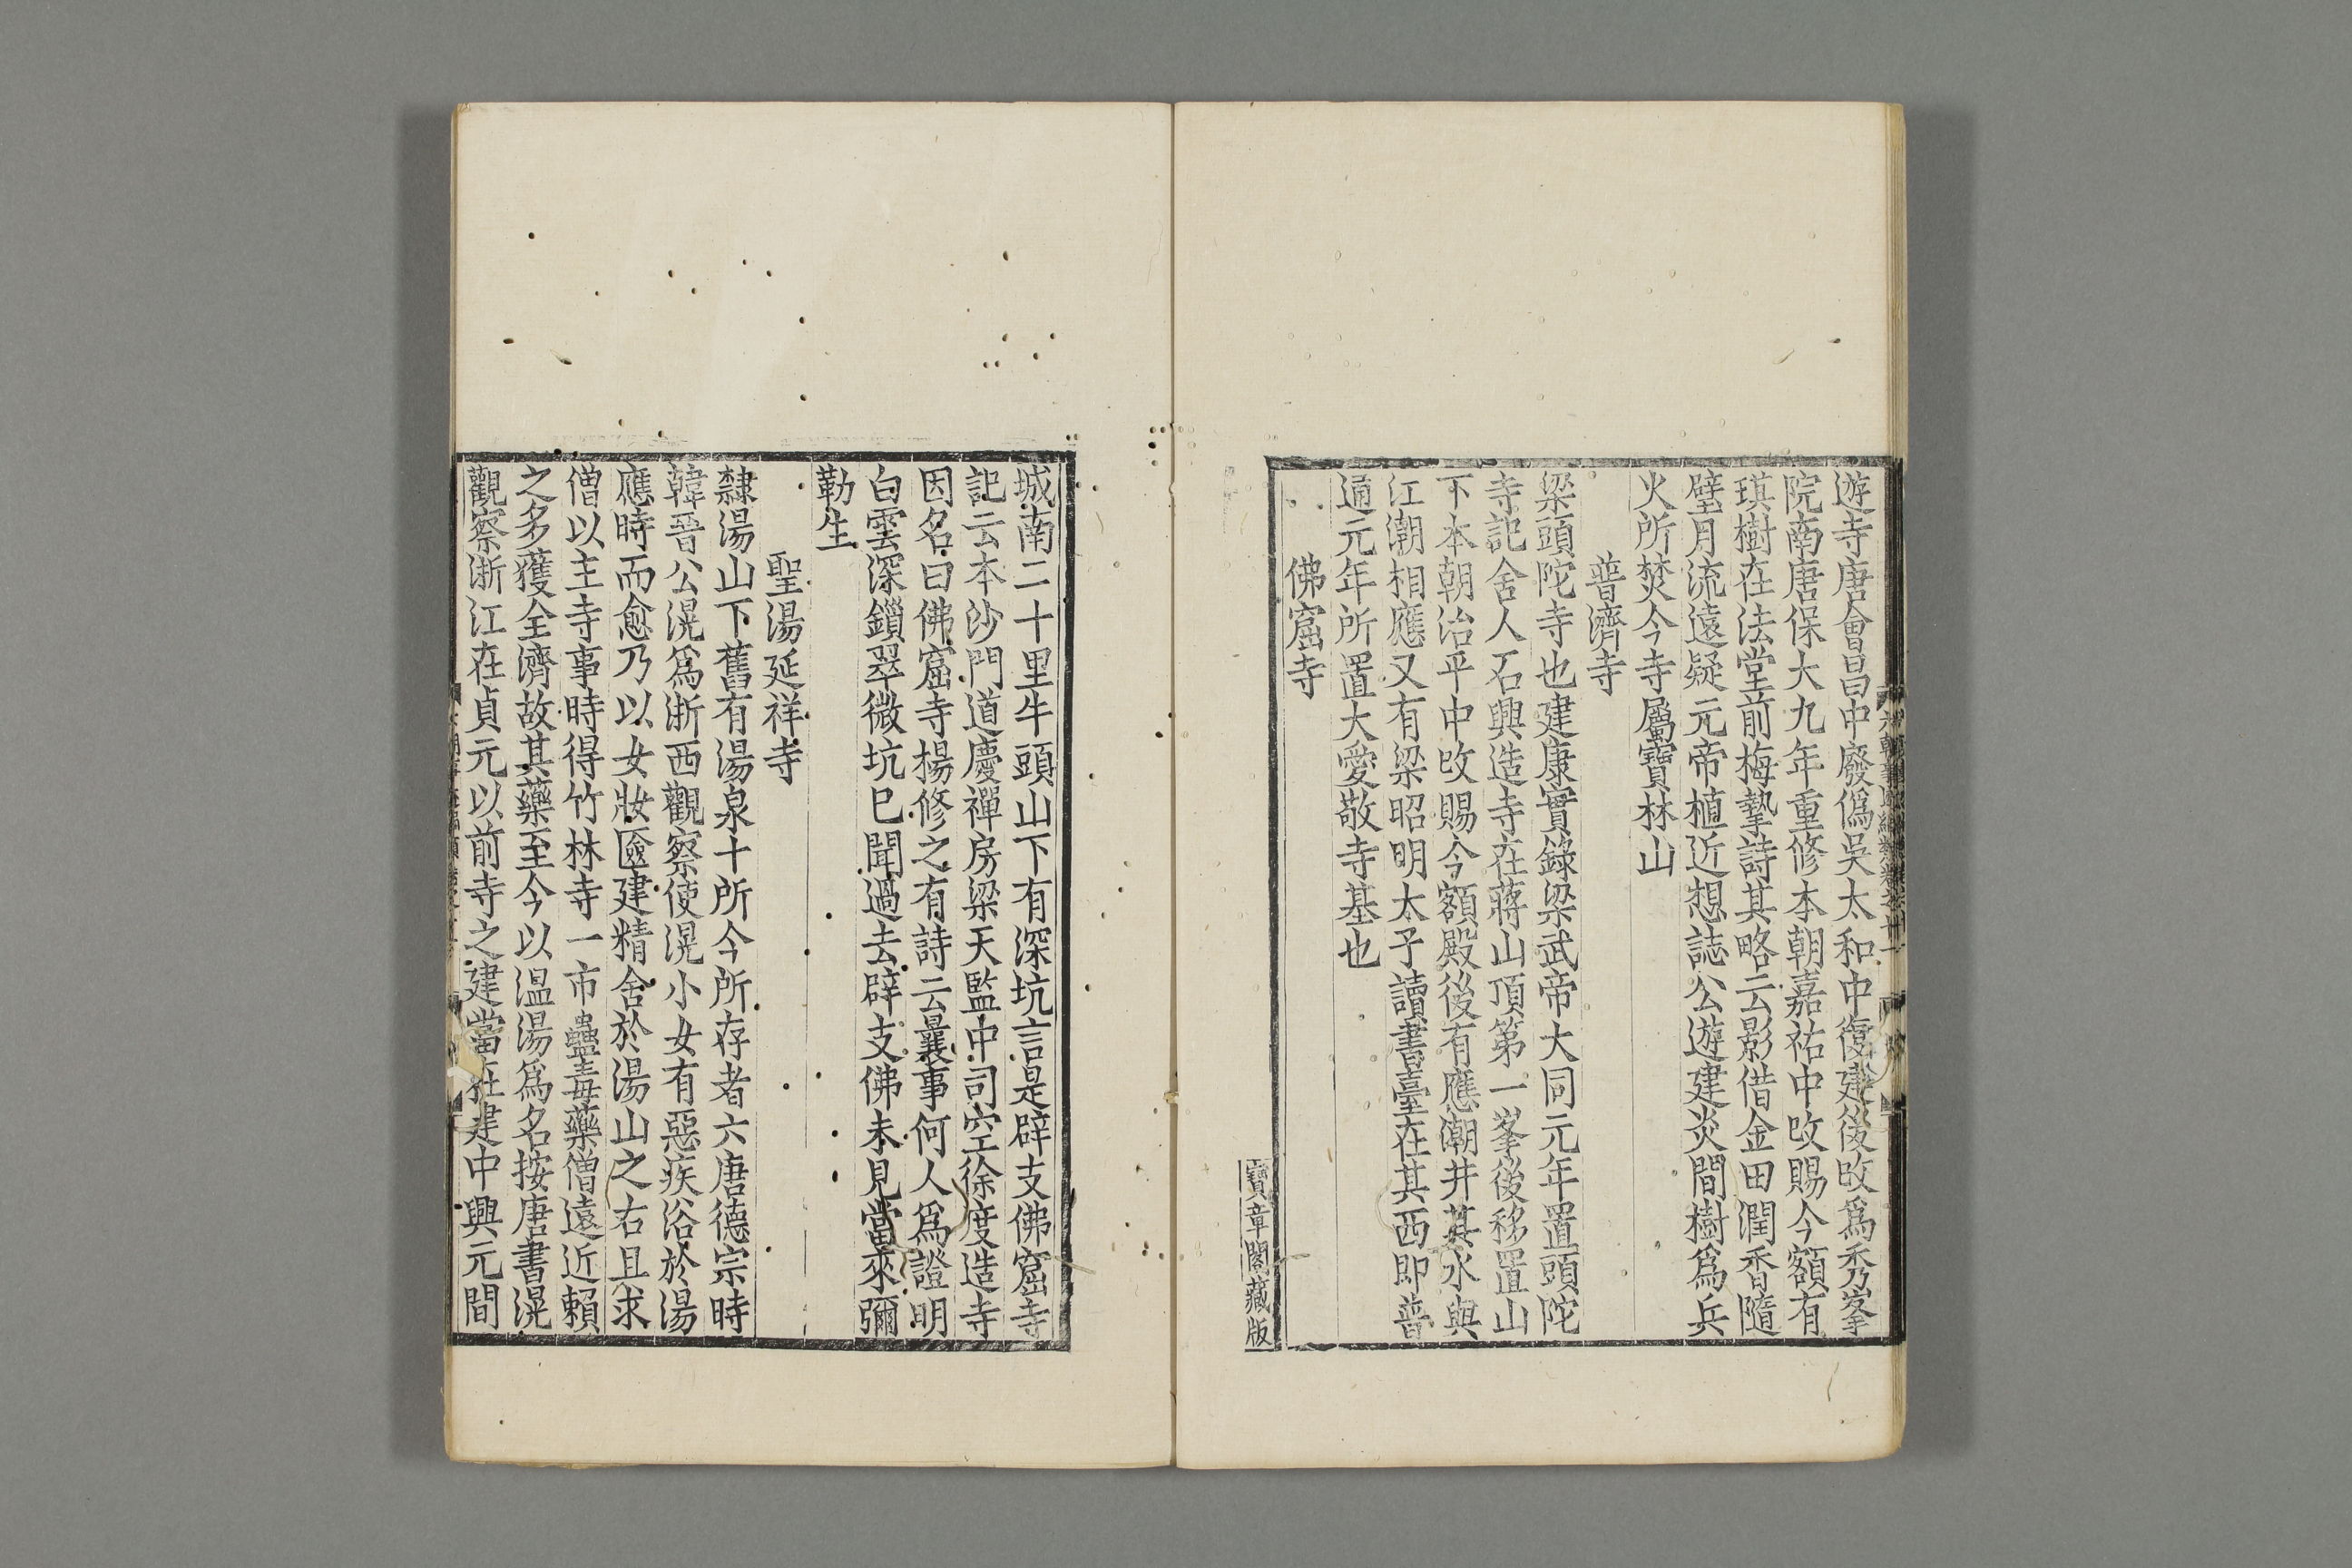 遊寺唐會昌中廢僞吳太和中復建後改爲秀峯
院南唐保大九年重修本朝嘉祐中改賜今額有
琪樹在法堂前梅摯詩其略云影借金田潤香隨
璧月流遠疑元帝植近想誌公遊建炎間樹爲兵
火所焚今寺屬寶林山
普濟寺
梁頭陀寺也建康實錄梁武帝大同元年置頭陀
寺記舍人石興造寺在蔣山頂第一峯後移置山
下本朝治平中改賜今額殿後有應潮井其水與
江潮相應又有梁昭明太子讀書臺在其西即普
通元年所置大愛敬寺基也
佛窟寺
寶章閣藏版
城南二十里牛頭山下有深坑言是辟支佛窟寺
記云本沙門道慶禪房梁天監中司空徐度造寺
因名曰佛窟寺楊修之有詩云曩事何人爲證明
白雲深鎖翠微坑已聞過去辟支佛未見當來彌
勒生
聖湯延祥寺
隸湯山下舊有湯泉十所今所存者六唐德宗時
韓晉公滉爲浙西觀察使滉小女有惡疾浴於湯
應時而愈乃以女妝匳建精舍於湯山之右且求
僧以主寺事時得竹林寺一市蠱毒藥僧遠近賴
之多獲全濟故其藥至今以温湯爲名按唐書滉
觀察浙江在貞元以前寺之建當在建中興元間